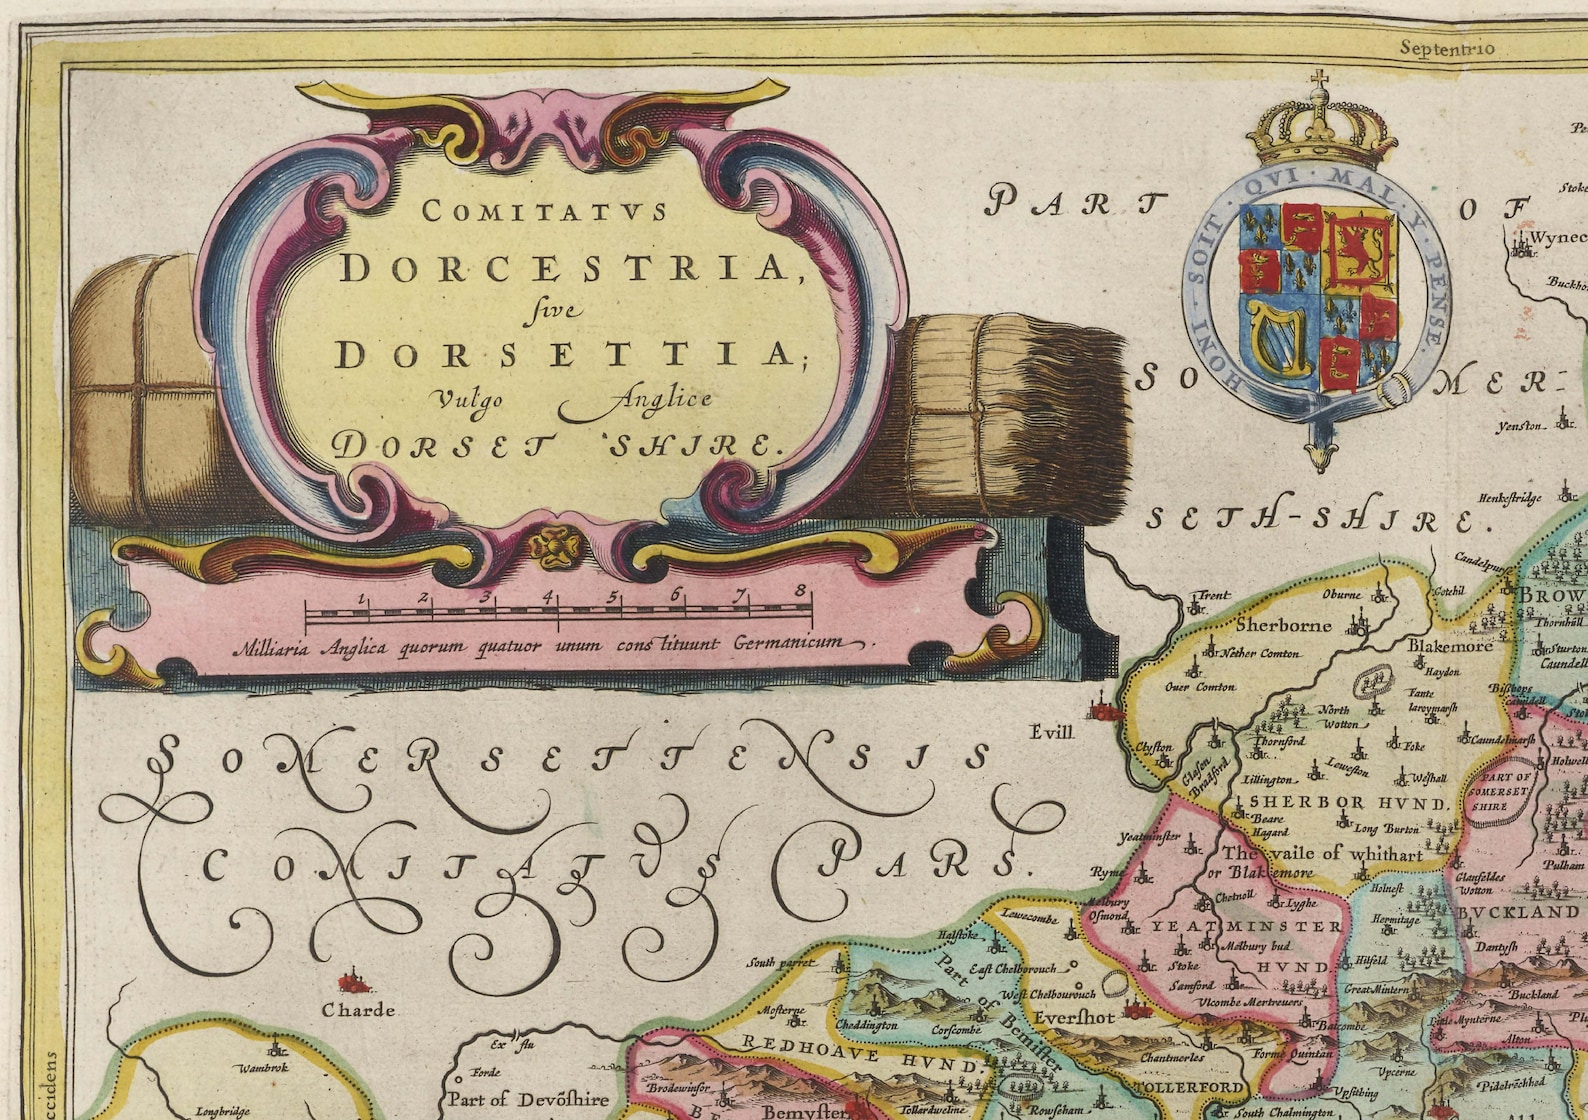 Septentrio
COMITATVS
DORCESTRIA,
sive
DORSETTIA;
Vulgo Anglice
DORSET SHIRE.
1 2 3 4 5 6 7 8
Milliaria Anglica quorum quatuor unum constituunt Germanicum.
HONI · SOIT · QVI · MAL · Y · PENSE.
PART OF
SOMER-
SETH-SHIRE.
SOMERSETTENSIS
COMITATVS PARS.
Wynec
Buckho
Stoke
Yenston
Henkestridge
Candelpurse
Trent
Oburne
Gotehil
BROW
Thornhull
Sherborne
Blakemore
Sturton
Caundell
Nether Comton
Haydon
Ouer Comton
Bishops
Caundell
North
Wotton
Evill
Clyfton
Thornford
Foke
Caundelmarsh
Holwell
Glasen
Bradford
Lillington
Leweston
Weshall
PART OF
SOMERSET
SHIRE
SHERBOR HVND.
Beare
Hagard
Long Burton
Yeatminster
The vaile of whithart
or Blakemore
Pulham
Ryme
Holnest
Glanfeldes
Wotton
Chetnoll
Lyghe
Melbury
Osmond
Lewecombe
Hermitage
BVCKLAND
YEATMINSTER
HVND
Melbury bud
Dantysh
Halstoke
South parret
East Chelborough
Stoke
Hilfeld
Part of Bemister
Samford
Great Mintern
Buckland
West Chelbourouch
Vlcombe Mertreuers
Charde
Mosterne
Cheddington
Corscombe
Evershot
Batcombe
Litle Mynterne
Alton
Ex flu
REDHOAVE HVND.
Chantmerles
Forme Quintan
Wambrok
Forde
Vpcerne
Brodewinsor
TOLLERFORD
Vpsitbing
Pidelrechhed
Longbridge
Part of Devõshire
Bemyster
Tollardweline
Rowseham
South Chalmington